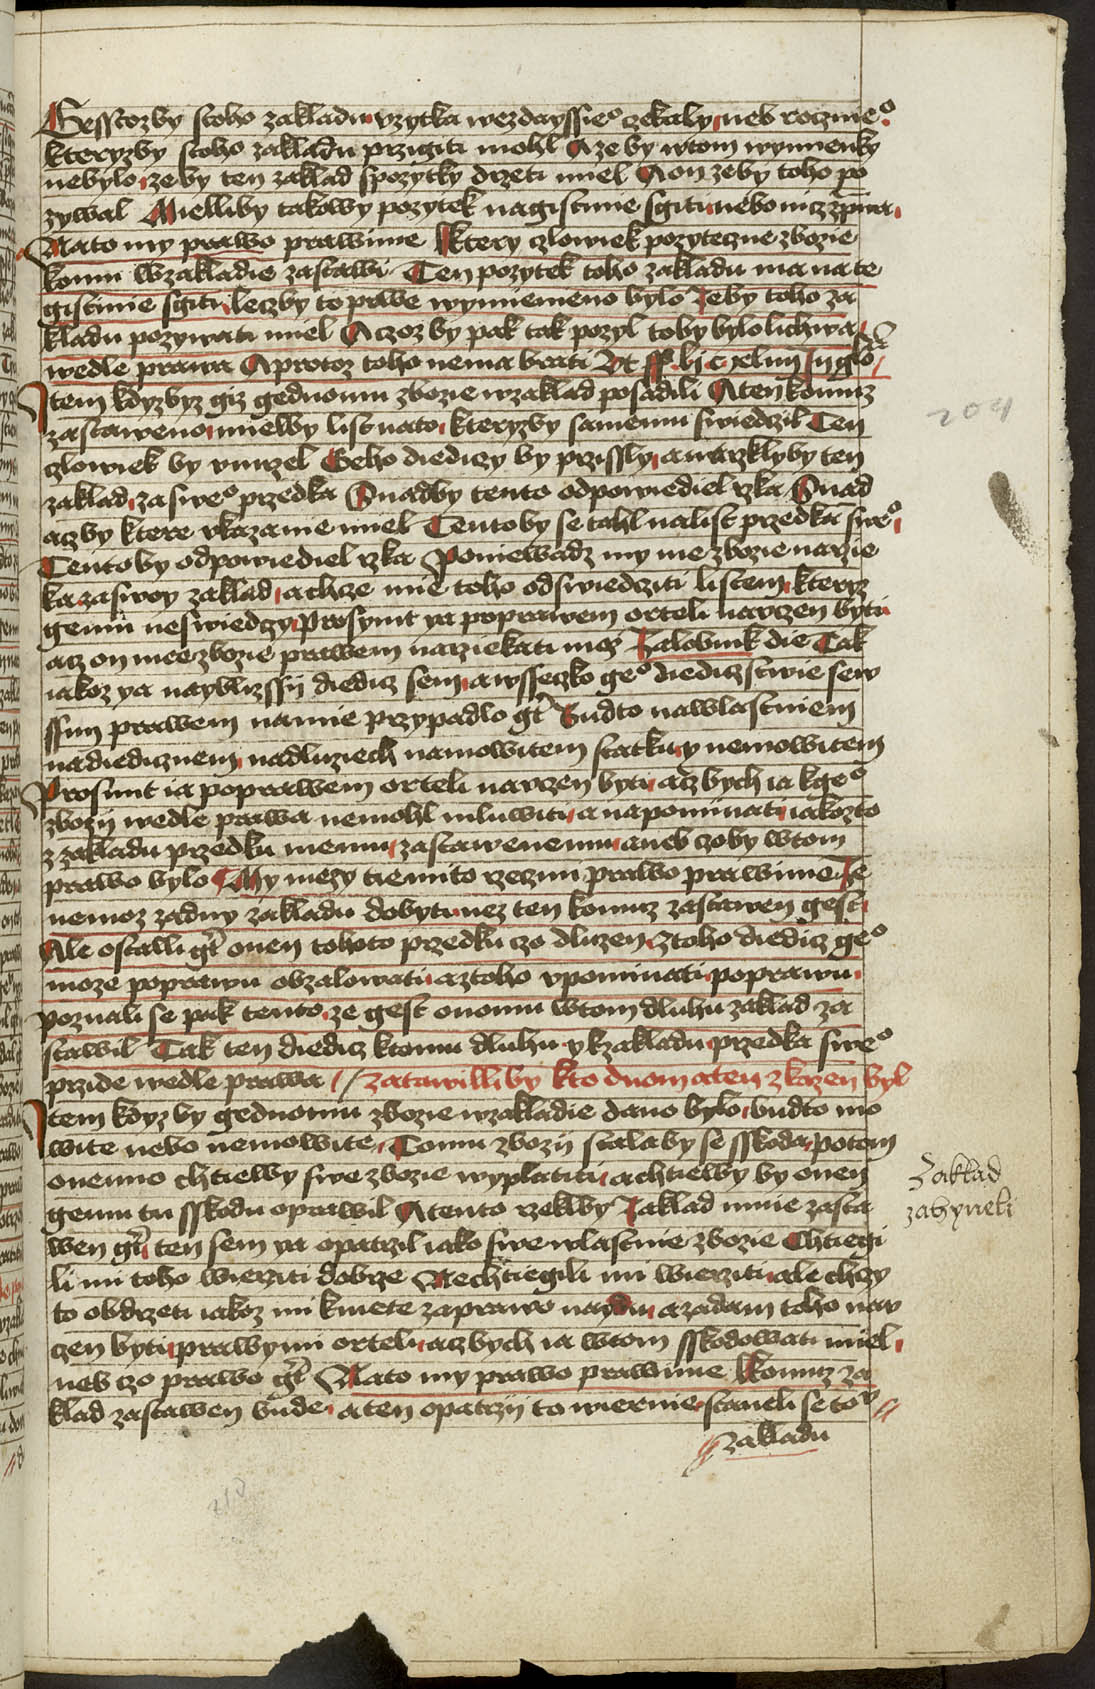 Gessczozby stoho zakladu vzytka wezdayssieo czekaly neb rocznieo
kteryzby stoho zakladu przigiti mohl A zeby wtom wymienky
nebylo zeby ten zaklad spozytky drzeti miel A on zeby toho po
zywal Mielliby takowy pozytek na gistinie sgiti nebo nicz
Nato my prawo prawime Ktery czlowiek pozyteczne zbozie
komu wzakladie zastawi Ten pozytek toho zakladu ma na te
gistinie sgiti leczby to prwe wymieneno bylo Zeby toho za
kladu pozywati miel A czoz by pak tak pozyl to by bylo lichwa
wedle prawa A protoz toho nema brati
Item kdyzbyz giz gednomu zbozie wzaklad posadili A ten komuz
zastaweno mielby list nato kteryzby samemu swiedczil Ten
czlowiek by vmrzel Geho diediczy by przissly a narzklyby ten
zaklad za sweo przedka Snadby tento odpowiediel rzka Snad
aczby ktere vkazanie miel Tentoby se tahl na list przedka sweo
Tento by odpowiediel rzka Poniewadz my me zbozie narzie
ka za swoy zaklad a chcze mie toho odswiedcziti listem kteryz
gemu neswiedczy Prosymt ya poprawem orteli nauczen byti
acz on mee zbozie prawem narziekati moz Zalobnik die Tak
iakoz ya nayblizssij diedicz sem a wsseczko geo diedicztwie sew
ssim prawem na mie przypadlo gt Budto na wlastniem
na diedicznem na dluziech na mowitem statku y nemowitem
Prosimt ia poprawem orteli nauczen byti aczbych ia k geo
zbozij wedle prawa nemohl mluwiti a napominati iakozto
z zakladu przedku memu zastawenemu aneb czo by wtom
prawo bylo My mezy tiemito rzeczmi prawo prawime Ze
nemoz zadny zakladu dobyti nez ten komuz zastawen gest
Ale ostalli gt onen tohoto przedku czo dluzen Ztoho diedicz geo
moze poprawu obzalowati a ztoho vpominati poprawu
Poznali se pak tento ze gest onomu wtom dluhu zaklad za
stawil Tak ten diedicz ktomu dluhu y kzakladu przedka sweo
przide wedle prawa // Zatawilliby kto duom a ten zkazen byl
Item kdyz by gednomu zbozie wzakladie dano bylo budto mo
wite nebo nemowite Tomu zbozij stala by se sskoda potom
onenno chtielby swe zbozie wyplatiti a chtielby by onen
gemu tu sskodu oprawil A tento rzeklby Zaklad mnie zasta
wen gt ten sem ya opatrzil iako swe wlastnie zbozie Chtiegi
li mi toho wierziti dobrze Nechtiegili mi wierziti ale chczy
to obdrzeti iakoz mi kmete zaprawo naydu a zadam toho nau
czen byti prawymi orteli aczbych ia wtom sskodowati miel
neb czo prawo gt Nato my prawo prawime Komuz za
klad zastawen bude a ten opatrzij to wiernie staneli se too
zakladu
204
Zaklad
zahyneli